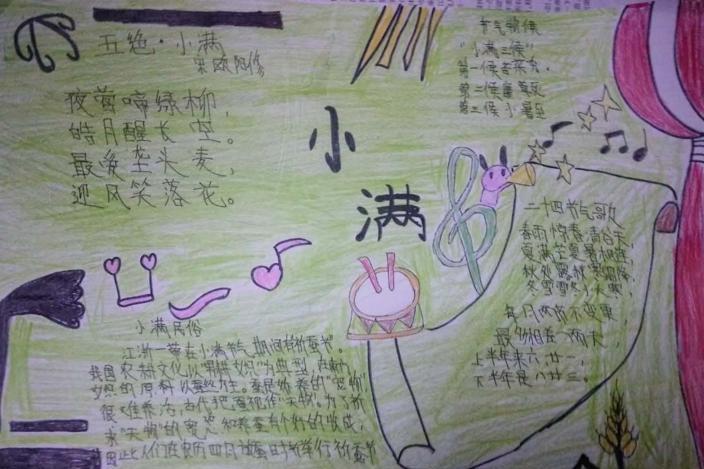 五绝·小满
宋 欧阳修
夜莺啼绿柳,
皓月醒长空。
最爱垄头麦,
迎风笑落花。
小满
节气物候
"小满三候"
第一候苦菜秀,
第三候小暑至
二十四节气歌
春雨惊春清谷天,
夏满芒夏暑相连
秋处露秋寒霜降,
冬雪雪冬小大寒,
每月两节不变更,
最多相差一两天,
上半年来六廿一,
下半年是八廿三。
小满民俗
江浙一带在小满节气期间有祈蚕节。
我国农耕文化以"男耕女织"为典型,
的原料
以蚕丝为主。蚕是娇养的"宠物"
很难养活,古代把蚕视作"天物"。为了祈
求"天物"的宽恕和养蚕有个好的收成,
因此人们在农历四月放蚕时节举行祈蚕节